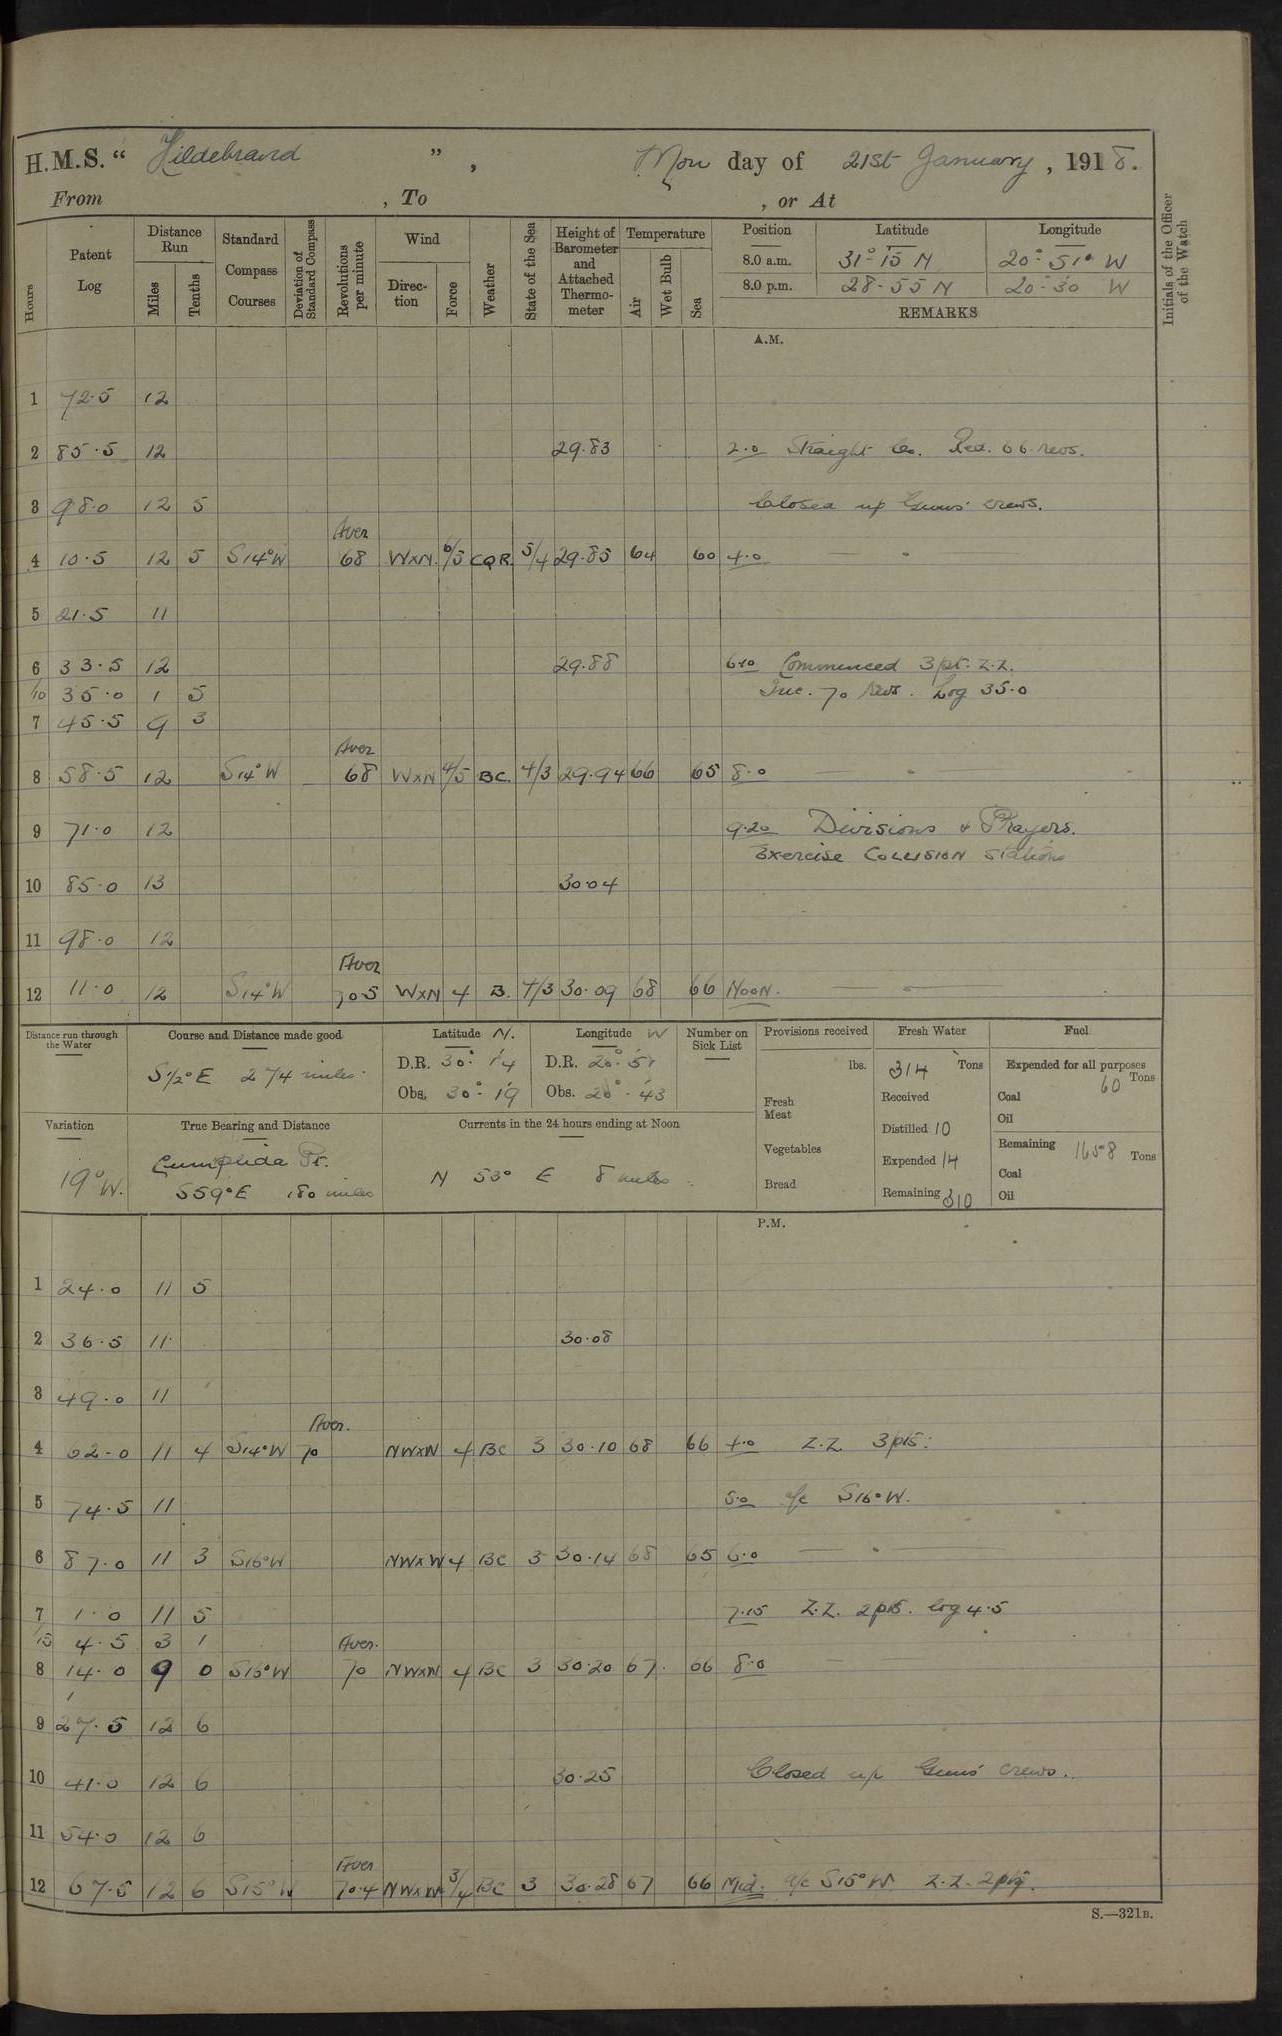 H.M.S. “ Hildebrand ”, Mon day of 21st January, 1918.
From , To , or At
Hours
Patent Log
Distance Run
Miles
Tenths
Standard Compass Courses
Deviation of Standard Compass
Revolutions per minute
Wind
Direction
Force
Weather
State of the Sea
Height of Barometer and Attached Thermometer
Temperature
Air
Wet Bulb
Sea
Position Latitude Longitude
8.0 a.m. 31° 15 N 20° 51' W
8.0 p.m. 28·55 N 20·30 W
REMARKS
Initials of the Officer of the Watch
A.M.
1 72·5 12
2 85·5 12 29·83 2·0 Straight Co. Red. 66 revs.
3 98·0 12 5 Closed up Guns' crews.
Aver
4 10·5 12 5 S14°W 68 WxN 6/5 CQR 5/4 29·85 64 60 4·0
5 21·5 11
6 33·5 12 29·88 6·10 Commenced 3 pt. Z.Z.
/10 35·0 1 5 Inc. 70 revs. Log 35·0
7 45·5 9 3
Aver
8 58·5 12 S14°W 68 WxN 4/5 BC. 4/3 29·94 66 65 8·0
9 71·0 12 9·20 Divisions & Prayers.
Exercise COLLISION Stations
10 85·0 13 30·04
11 98·0 12
Aver
12 11·0 12 S14°W 70·5 WxN 4 B. 4/3 30·09 68 66 NOON.
Distance run through the Water
Course and Distance made good
S½°E 274 miles.
Latitude N.
D.R. 30° 14
Obs. 30° 19
Longitude W
D.R. 20° 51
Obs. 20° 43
Number on Sick List
Provisions received
lbs.
Fresh Meat
Vegetables
Bread
Fresh Water
314 Tons
Received
Distilled 10
Expended 14
Remaining 310
Fuel
Expended for all purposes
60 Tons
Coal
Oil
Remaining 1658 Tons
Coal
Oil
Variation
19°W.
True Bearing and Distance
Pt.
S59°E 180 miles
Currents in the 24 hours ending at Noon
N 53° E 8 miles
P.M.
1 24·0 11 5
2 36·5 11 30·08
3 49·0 11
Aver.
4 62·0 11 4 S14°W 70 NWxW 4 BC 3 30·10 68 66 4·0 Z.Z. 3 pts.
5 74·5 11 5·0 a/c S16°W.
6 87·0 11 3 S16°W NWxW 4 BC 3 30·14 68 65 6·0
7 1·0 11 5 7·15 Z.Z. 2 pts. log 4·5
/15 4·5 3 1 Aver.
8 14·0 9 0 S16°W 70 NWxW 4 BC 3 30·20 67 66 8·0
9 27·5 12 6
10 41·0 12 6 30·25 Closed up Guns' crews.
11 54·0 12 6
Aver
12 67·5 12 6 S15°W 70·4 NWxW 3/4 BC 3 30·28 67 66 Mid. a/c S15°W Z.Z. 2 pts.
S.—321B.